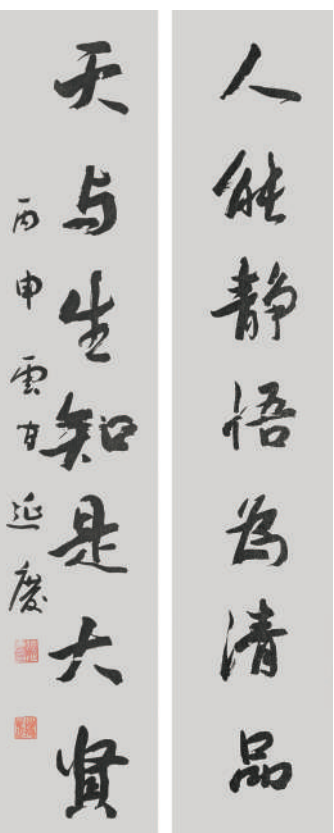 人能静悟為清品
天与生知是大贤
丙申雲甘延慶